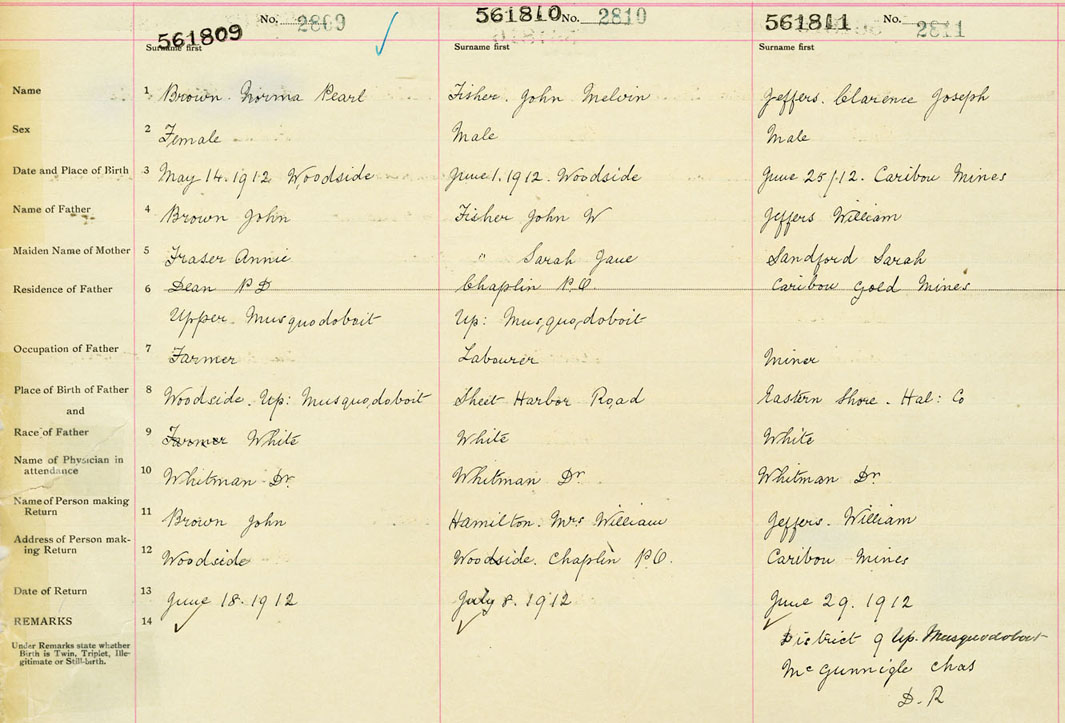 561809 No. 2809 561810 No. 2810 561811 No. 2811
Surname first Surname first Surname first
Name 1 Brown. Norma Pearl Fisher. John Melvin Jeffers. Clarence Joseph
Sex 2 Female Male Male
Date and Place of Birth 3 May 14. 1912 Woodside June 1. 1912. Woodside June 25/12. Caribou Mines
Name of Father 4 Brown John Fisher John W Jeffers William
Maiden Name of Mother 5 Fraser Annie " Sarah Jane Sandford Sarah
Residence of Father 6 Dean P.O Chaplin P.O. Caribou Gold Mines
Upper Musquodoboit Up: Musquodoboit
Occupation of Father 7 Farmer Labourer Miner
Place of Birth of Father 8 Woodside. Up: Musquodoboit Sheet Harbor Road Eastern Shore. Hal: Co
and
Race of Father 9 Farmer White White White
Name of Physician in
attendance 10 Whitman Dr. Whitman Dr Whitman Dr.
Name of Person making
Return 11 Brown John Hamilton. Mrs William Jeffers. William
Address of Person mak-
ing Return 12 Woodside Woodside. Chaplin P.O. Caribou Mines
Date of Return 13 June 18. 1912 July 8. 1912 June 29. 1912
REMARKS 14
Under Remarks state whether
Birth is Twin, Triplet, Ille-
gitimate or Still-birth.
District of Up. Musquodoboit
McGunnigle Chas
D. R